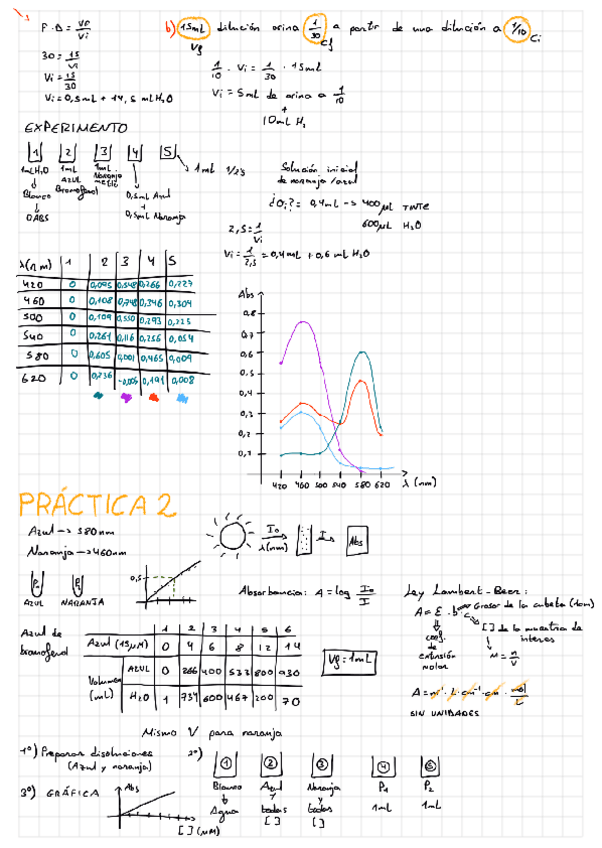 F·D = Vf/Vi
30 = 15/Vi
Vi = 15/30
Vi = 0,5 mL + 14,5 mL H2O
b) 15mL dilución orina 1/30 a partir de una dilución a 1/10
Vf Cf Ci
1/10 · Vi = 1/30 · 15mL
Vi = 5mL de orina a 1/10
+
10mL H2
EXPERIMENTO
1 2 3 4 5
1mL H2O
↓
Blanco
↓
0 ABS
1mL Azul Bromofenol
1mL Naranja metilo
0,5mL Azul
+
0,5mL Naranja
1mL 1/25
Solución inicial de naranja/azul
¿Ci? = 0,4mL -> 400 µL TINTE
600µL H2O
2,5 = 1/Vi
Vi = 1/2,5 = 0,4mL + 0,6 mL H2O
λ(nm) 1 2 3 4 5
420 0 0,095 0,548 0,266 0,227
460 0 0,108 0,748 0,346 0,304
500 0 0,109 0,550 0,293 0,225
540 0 0,261 0,116 0,256 0,054
580 0 0,605 0,001 0,465 0,009
620 0 0,236 -0,005 0,191 0,008
Abs
0,8
0,7
0,6
0,5
0,4
0,3
0,2
0,1
420 460 500 540 580 620 λ (nm)
PRÁCTICA 2
Azul -> 580nm
Naranja -> 460nm
I0
λ(nm)
I
Abs
P1 P2
AZUL NARANJA
0,5
Absorbancia: A = log I0/I
Ley Lambert-Beer:
A = ε · b · c
Grosor de la cubeta (1cm)
[ ] de la muestra de interes
coef. de extinsión molar
M = n/V
A = M⁻¹ · L · cm⁻¹ · cm · mol/L
SIN UNIDADES
Azul de bromofenol
1 2 3 4 5 6
Azul (15µM) 0 4 6 8 12 14
Volumen (mL)
AZUL 0 266 400 533 800 930
H2O 1 734 600 467 200 70
Vf = 1mL
Mismo V para naranja
1º) Preparar disoluciones (Azul y naranja)
2º)
1 2 3 4 5
Blanco
↓
Agua
Azul y todas [ ]
Naranja y todas [ ]
P1
1mL
P2
1mL
3º) GRÁFICA
Abs
[ ] (µM)